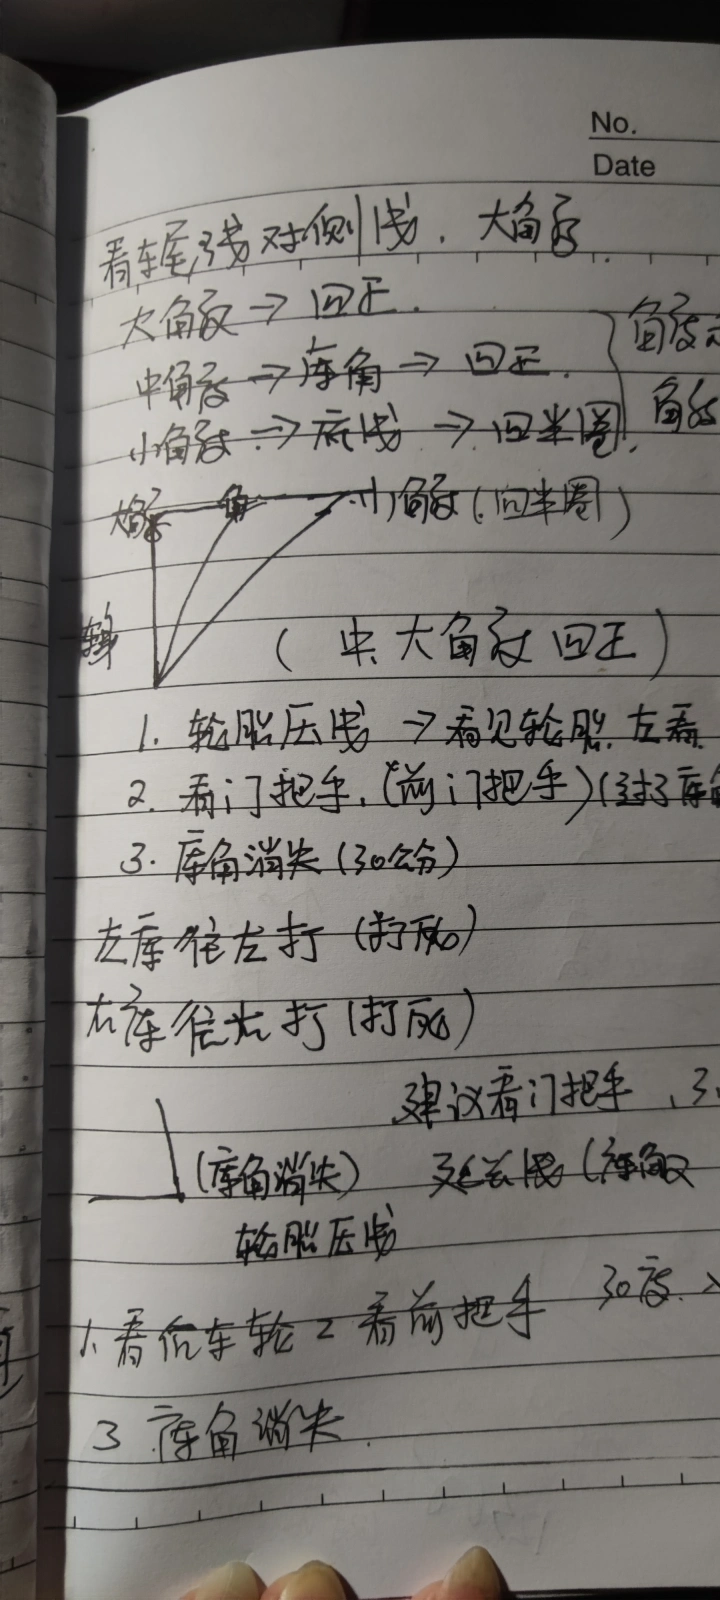 No.
Date
看车尾线对侧线．大角度．
大角度→回正．
中角度→库角→回正．
小角度→底线→回半圈．
角度
角度
大角度 中角 小角度(回半圈)
(中．大角度回正)
1. 轮胎压线→看见轮胎．左看．
2. 看门把手．(前门把手)(过了库角
3. 库角消失(30公分)
左库往左打(打死)
右库往右打(打死)
建议看门把手、3、
(库角消失) 延长线(库角
轮胎压线
1、看后车轮 2 看前把手 30度、
3 库角消失．